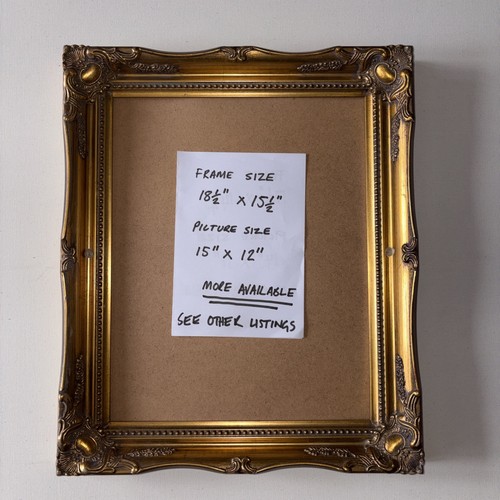 FRAME SIZE
18½" x 15½"
PICTURE SIZE
15" x 12"
MORE AVAILABLE
SEE OTHER LISTINGS